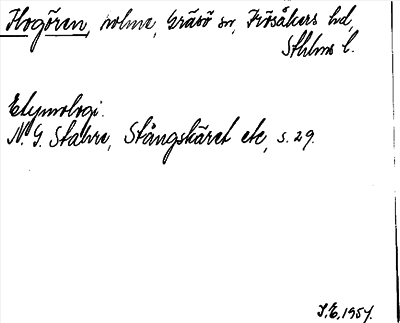 Hogören, holme, Gräsö sn, Frösåkers hd,
Sthlms l.
Etymologi.
N. G. Stahre, Stångskäret etc, s. 29.
S.E. 1957.